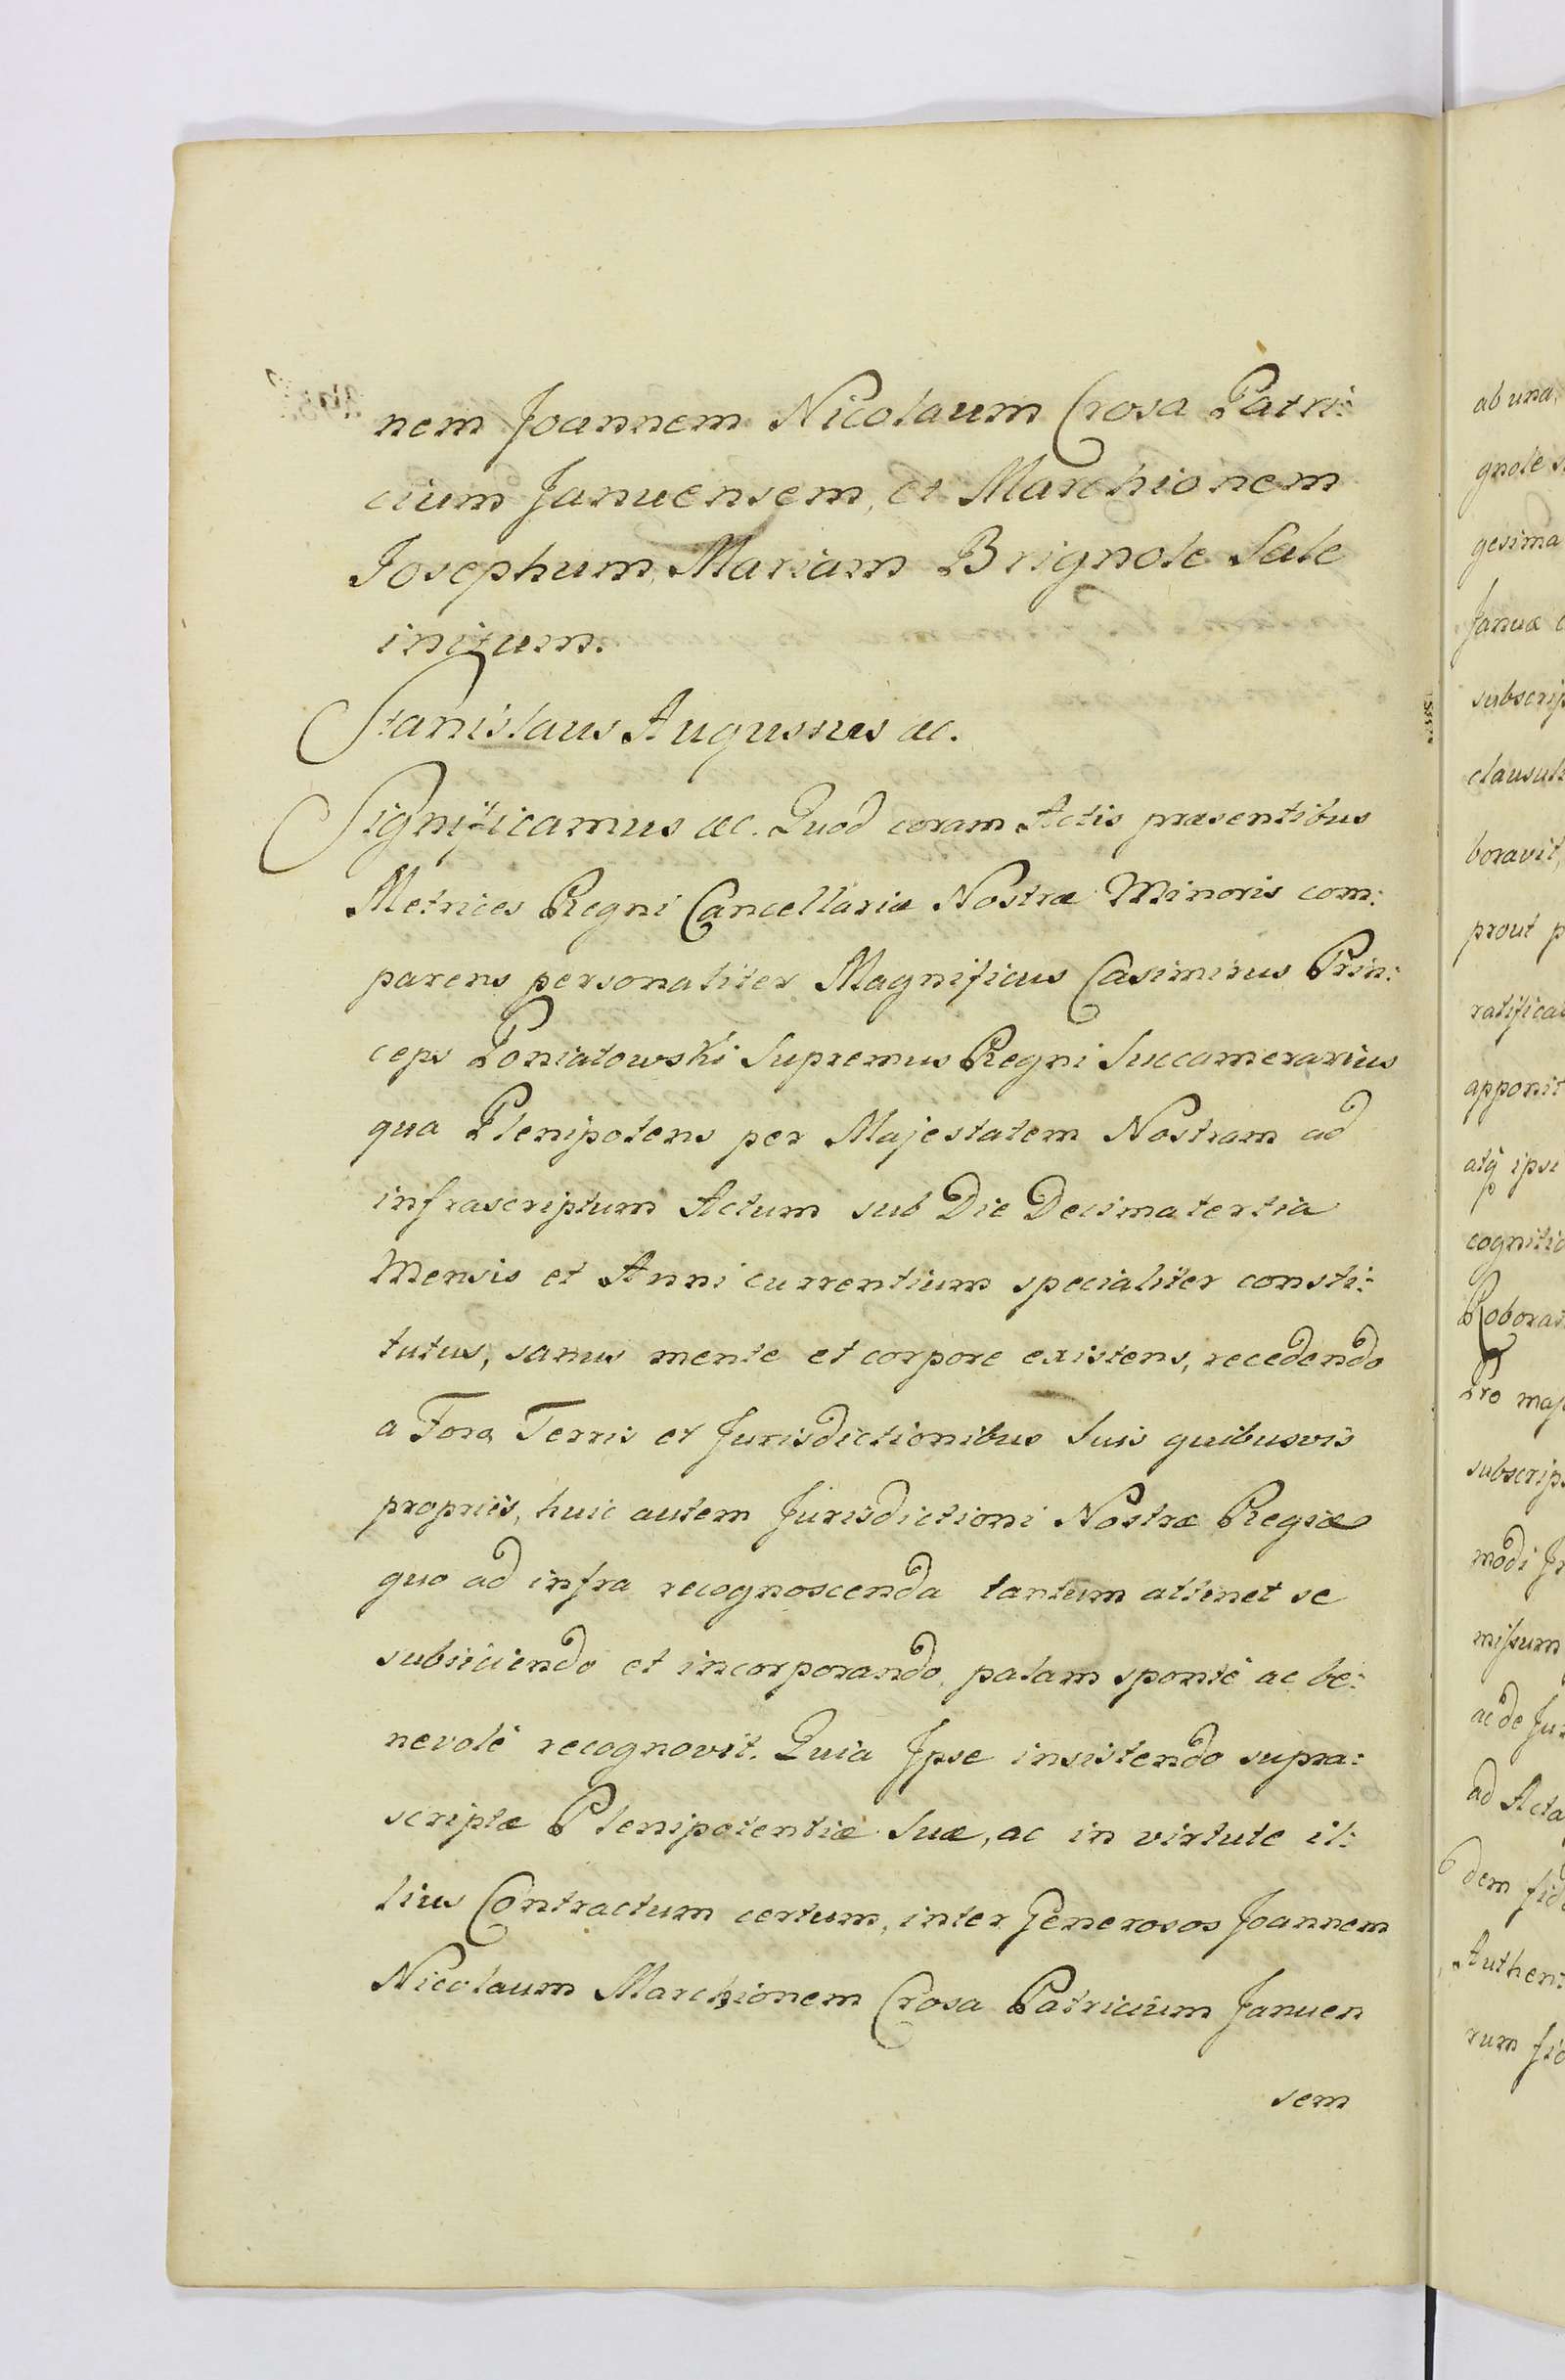 nem Joannem Nicolaum Crosa Patri:
cium Januensem, et Marchionem
Josephum Mariam Brignole Sale
initum.
Stanislaus Augustus &c.
Significamus &c. Quod coram Actis præsentibus
Metrices Regni Cancellariæ Nostræ Minoris com:
parens personaliter Magnificus Casimirus Prin:
ceps Poniatowski Supremus Regni Succamerarius
qua Plenipotens per Majestatem Nostram ad
infrascriptum Actum sub Die Decimatertia
Mensis et Anni currentium specialiter consti:
tutus, sanus mente et corpore existens, recedendo
a Foro Terris et Jurisdictionibus Suis quibusvis
propriis, huic autem Jurisdictioni Nostræ Regiæ
quo ad infra recognoscenda tantum attinet se
subiiciendo et incorporando, palam sponté ac be:
nevolé recognovit. Quia Ipse insistendo supra:
scriptæ Plenipotentiæ Suæ, ac in virtute il:
lius Contractum certum, inter Generosos Joannem
Nicolaum Marchionem Crosa Patricium Januen
sem
ab una
gnole
gesima
Januæ
subscrip
clausul
boravit,
prout p
ratifica
apponit
atq ipsi
cognitio
Roboras
Pro maj
subscrip
modi
missum
ac de Ju
ad Acta
dem fid
Authen:
rum fid